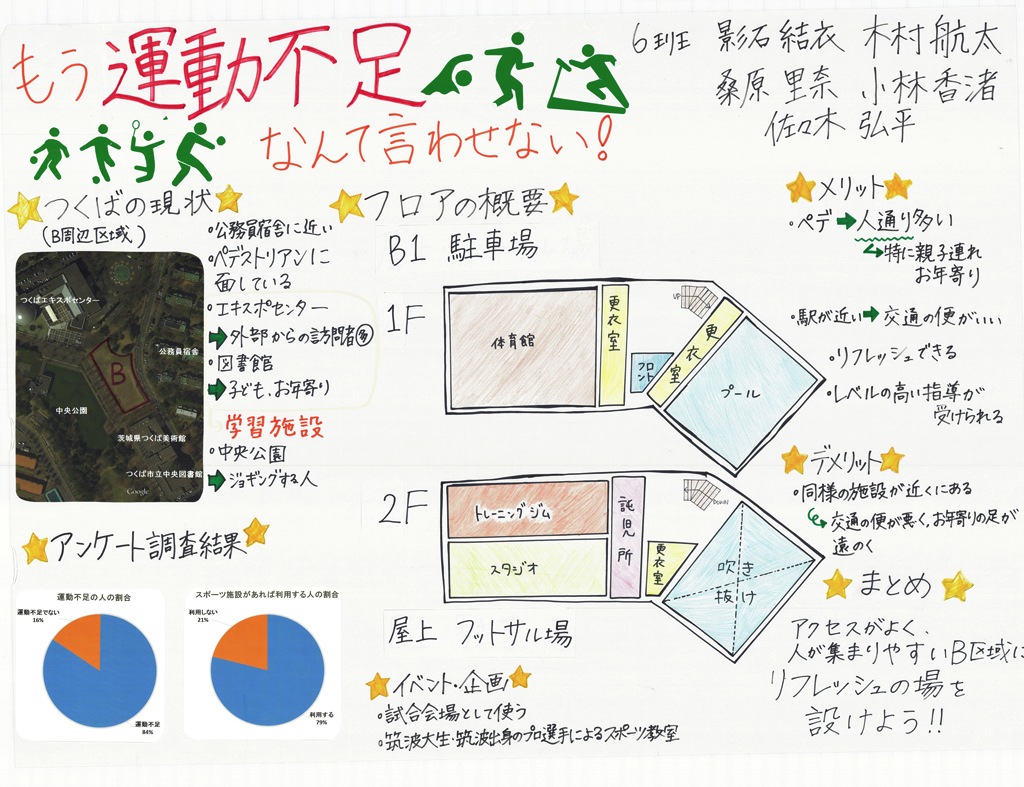 もう運動不足
なんて言わせない!
6班 影石 結衣 木村 航太
桑原 里奈 小林 香渚
佐々木 弘平
つくばの現状
(B周辺区域)
つくばエキスポセンター
公務員宿舎
B
中央公園
茨城県つくば美術館
つくば市立中央図書館
Google
・公務員宿舎に近い
・ペデストリアンに
面している
・エキスポセンター
➡外部からの訪問者多
・図書館
➡子ども、お年寄り
学習施設
・中央公園
➡ジョギングする人
アンケート調査結果
運動不足の人の割合
運動不足でない
16%
運動不足
84%
スポーツ施設があれば利用する人の割合
利用しない
21%
利用する
79%
フロアの概要
B1 駐車場
1F
体育館
更衣室
フロント
UP
更衣室
プール
2F
トレーニングジム
スタジオ
託児所
更衣室
DOWN
吹き
抜け
屋上 フットサル場
イベント・企画
・試合会場として使う
・筑波大生・筑波出身のプロ選手によるスポーツ教室
メリット
・ペデ➡人通り多い
特に親子連れ
お年寄り
・駅が近い➡交通の便がいい
・リフレッシュできる
・レベルの高い指導が
受けられる
デメリット
・同様の施設が近くにある
交通の便が悪く、お年寄りの足が
遠のく
まとめ
アクセスがよく、
人が集まりやすいB区域に
リフレッシュの場を
設けよう!!